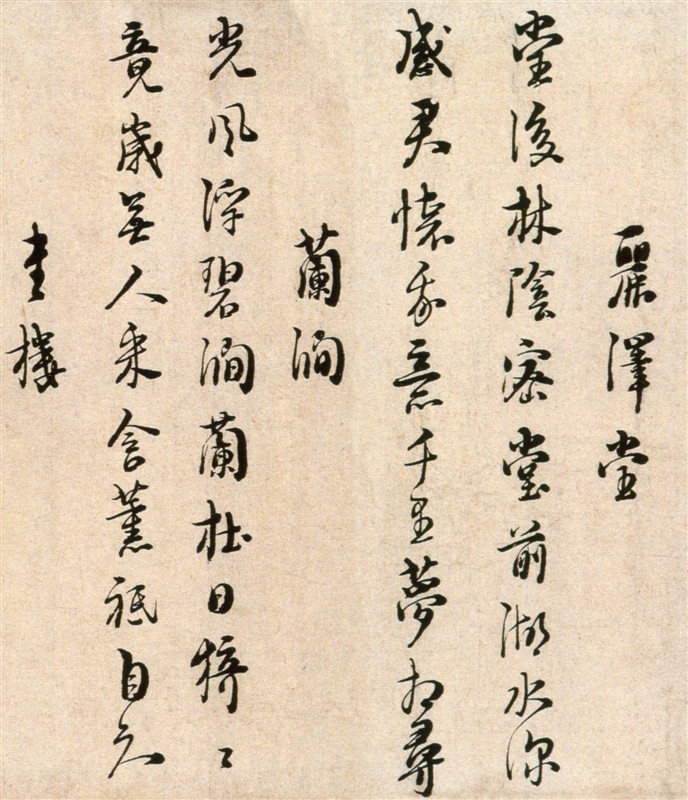 麗澤堂
堂後林陰密堂前湖水深
感君懷我意千里夢相尋
蘭澗
光風浮碧澗蘭杜日猗〻
竟歲無人采含薰祇自知
書樓